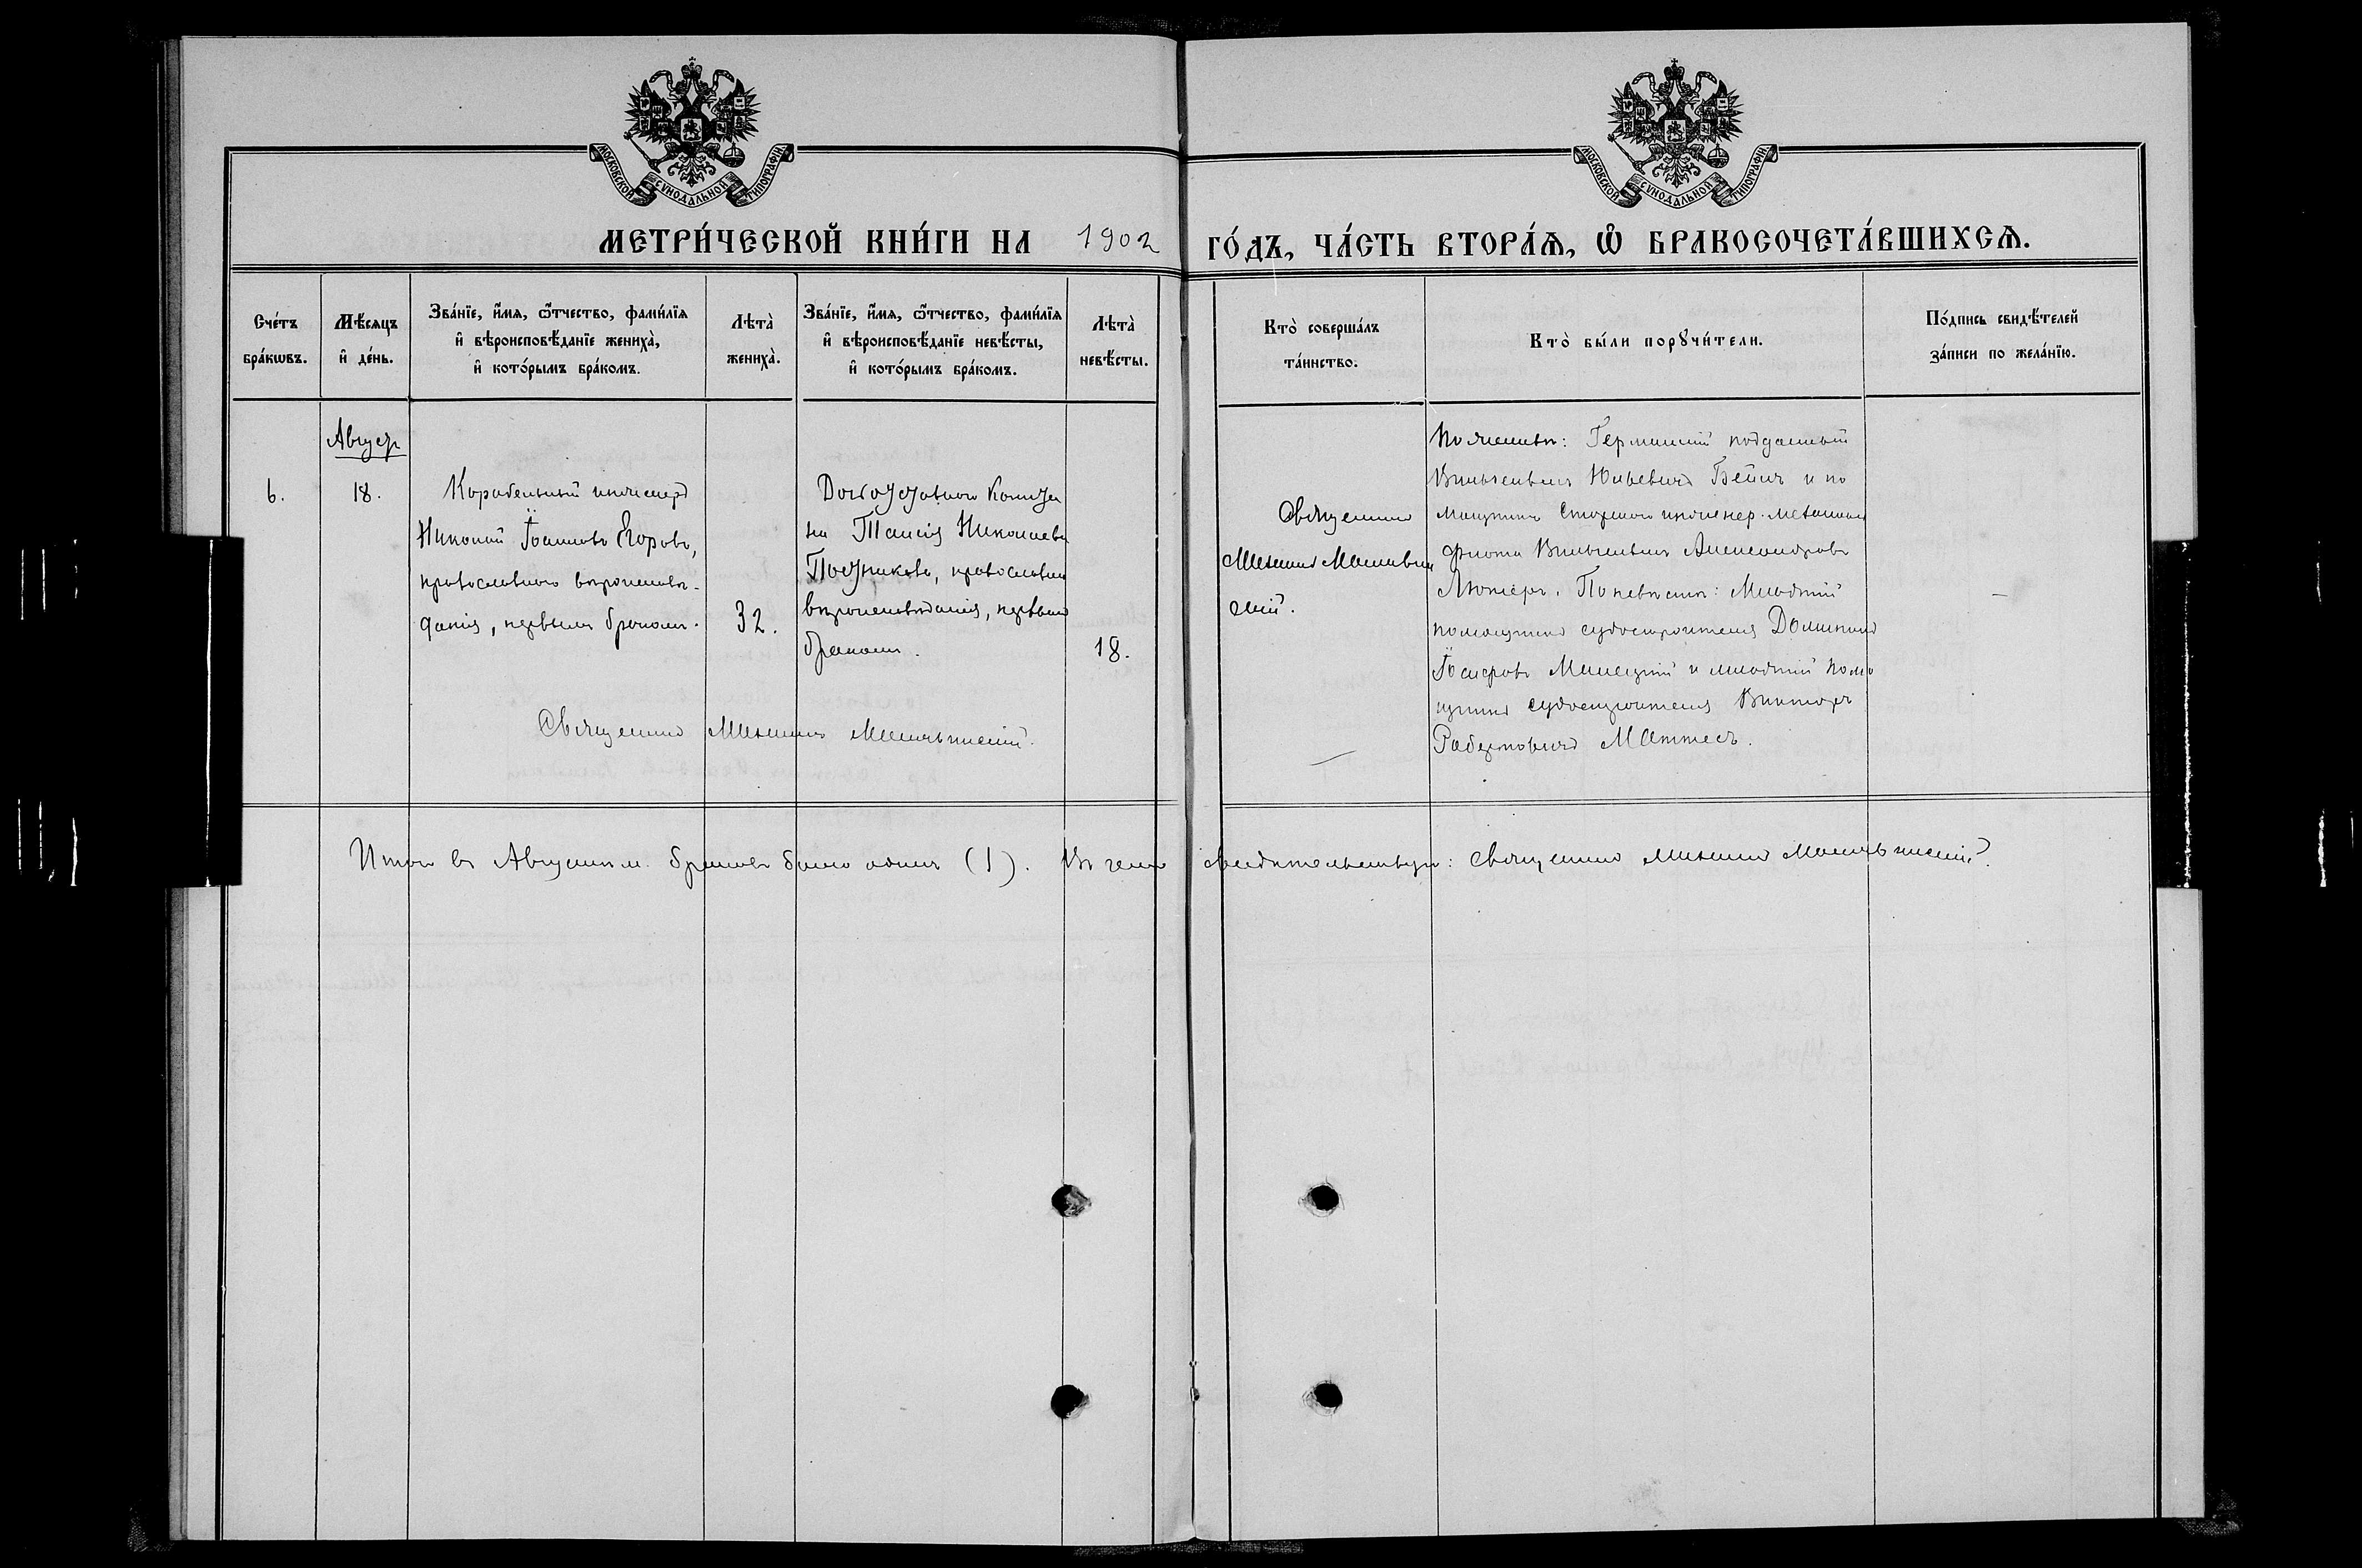 МОСКОВСКОЙ СѴНОДАЛЬНОЙ ТИПОГРАФІИ
МОСКОВСКОЙ СѴНОДАЛЬНОЙ ТИПОГРАФІИ
МЕТРИ́ЧЕСКОЙ КНИ́ГИ НА 1902 ГО́ДЪ, ЧА́СТЬ ВТОРА́Ѧ, Ѽ БРАКОСОЧЕТА́ВШИХСѦ.
Сче́тъ
бра́кѡвъ.
Мѣ́сѧцъ
и҆ де́нь.
Зва́нїе, и҆́мѧ, ѻ҆́тчество, фами́лїѧ
и҆ вѣроисповѣ́данїе жениха̀,
и҆ кото́рымъ бра́комъ.
Лѣта̀
жениха̀.
Зва́нїе, и҆́мѧ, ѻ҆́тчество, фами́лїѧ
и҆ вѣроисповѣ́данїе невѣ́сты,
и҆ кото́рымъ бра́комъ.
Лѣта̀
невѣ́сты.
Кто̀ соверша́лъ
та́инство.
Кто̀ бы́ли порꙋчи́тели.
По́дпись свидѣ́телей
за́писи по жела́нїю.
Август
6.
18.
Корабельный инженеръ
Николай Іоанновъ Егоровъ,
православнаго вѣроисповѣ-
данія, первымъ бракомъ.
32.
на Таисія Николаева
Постникова, православнаго
вѣроисповѣданія, первымъ
бракомъ.
18.
Священникъ
Михаилъ
По женихѣ: Германскій подданный
Вильгельмъ Юльевичъ и по
мощникъ Старшаго инженер-механика
флота Вильгельмъ Александровъ
По невѣстѣ: Младшій
помощникъ судостроителя
Іосифовъ и младшій помо
щникъ судостроителя Викторъ
Робертовичъ Маттесъ.
Священникъ Михаилъ
Итого въ Августѣ м. браковъ было одинъ (1). Въ чемъ свидѣтельствую: Священникъ Михаилъ